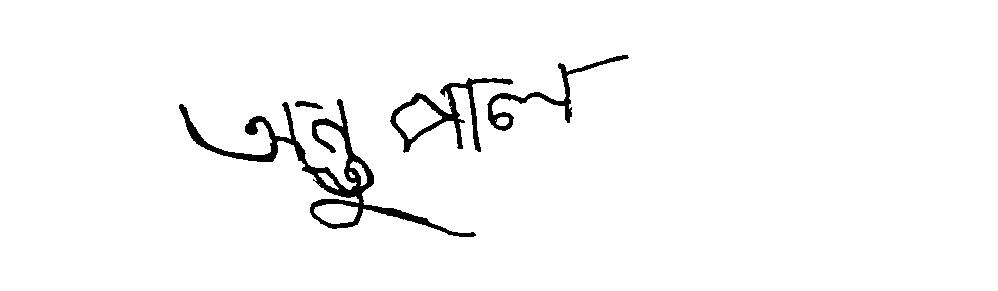 অন্তু পাল